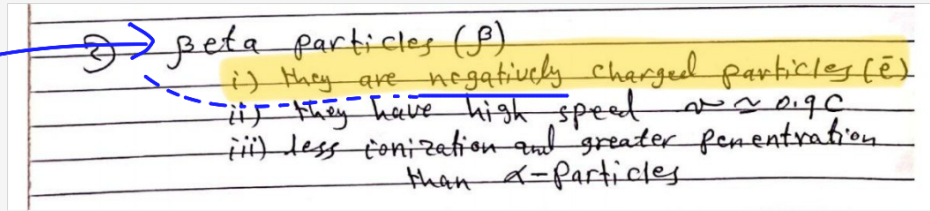 2) Beta particles (β)
i) they are negatively charged particles (ē)
ii) they have high speed v ≈ 0.9C
iii) less ionization and greater penentration
than α-particles